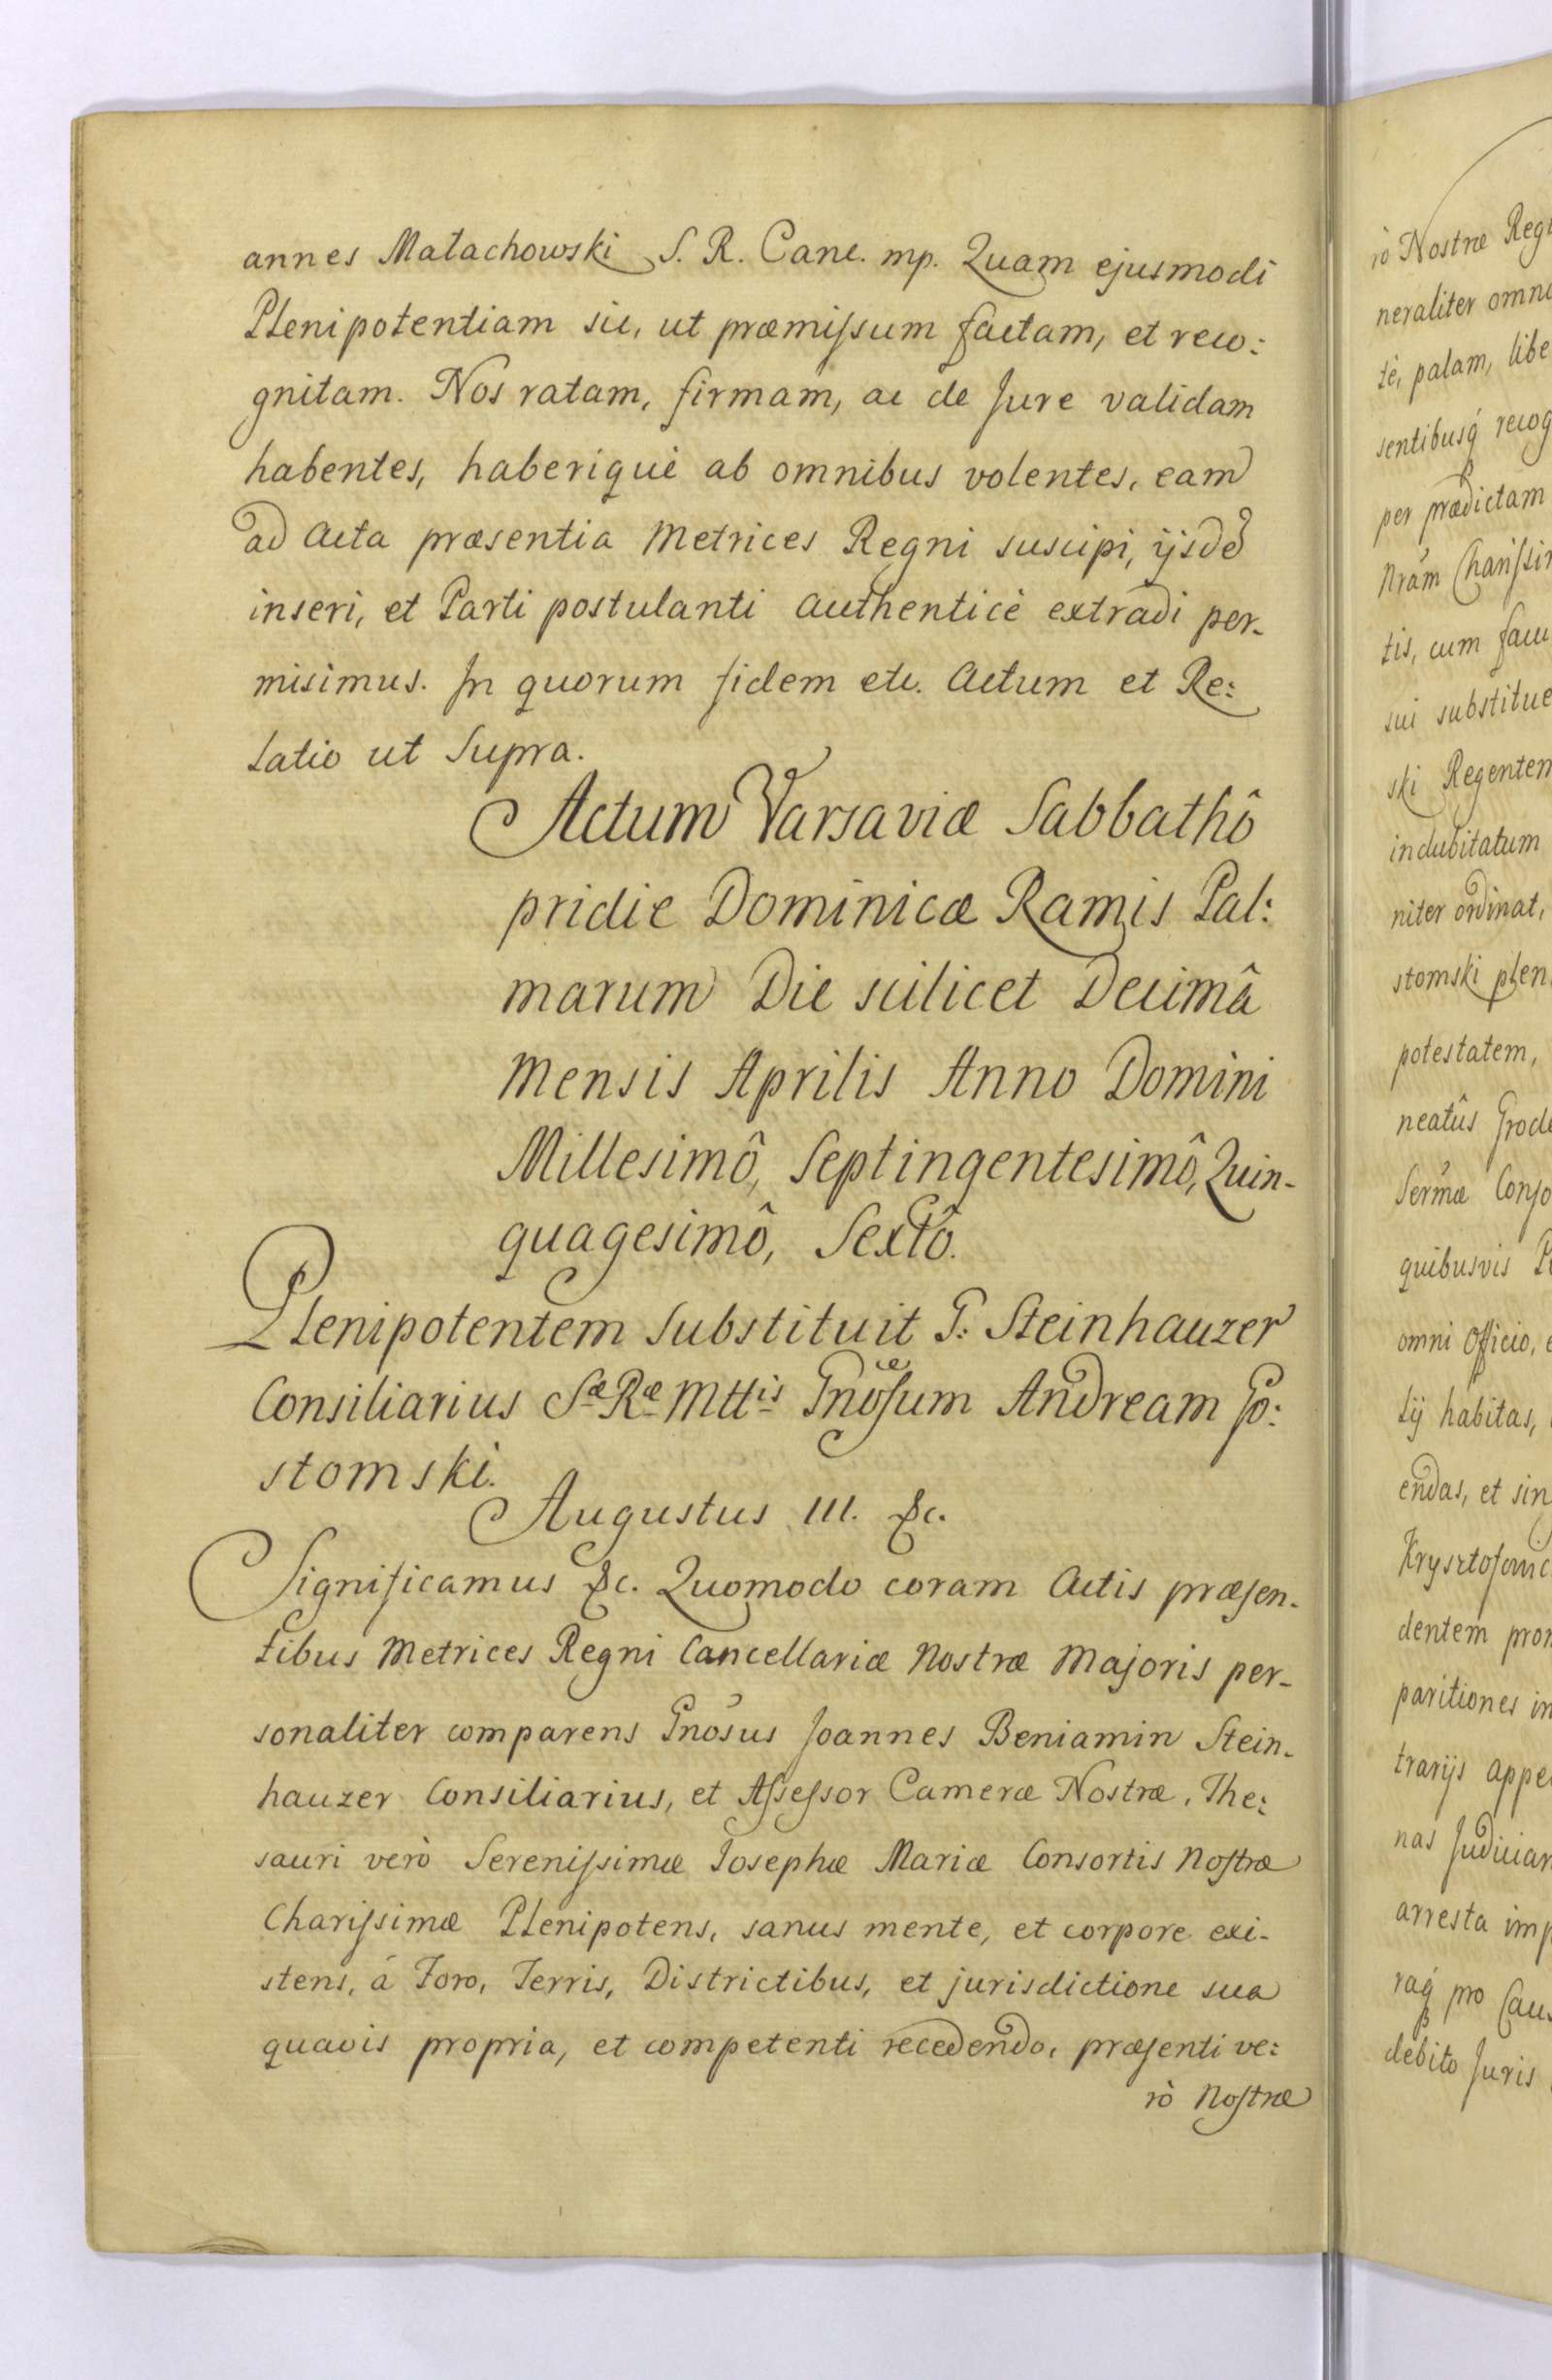 annes Małachowski S. R. Canc. mp. Quam ejusmodi
Plenipotentiam sic, ut præmissum factam, et reco:
gnitam. Nos ratam, firmam, ac de Jure validam
habentes, haberiquè ab omnibus volentes, eam
ad Acta præsentia Metrices Regni suscipi, ijsdẽ
inseri, et Parti postulanti authenticè extradi per-
misimus. In quorum fidem etc. Actum et Re:
latio ut Supra.
Actum Varsaviæ Sabbathô
pridie Dominicæ Ramis Pal:
marum Die scilicet Decimâ
Mensis Aprilis Anno Domini
Millesimô, Septingentesimô, Quin-
quagesimô, Sextô.
Plenipotentem Substituit G: Steinhauzer
Consiliarius Sæ Ræ Mttis Gnosum Andream Go:
stomski.
Augustus III. &c.
Significamus &c. Quomodo coram Actis præsen-
tibus Metrices Regni Cancellariæ Nostræ Majoris per-
sonaliter comparens Gnosus Joannes Beniamin Stein-
hauzer Consiliarius, et Assessor Cameræ Nostræ, The:
sauri verò Serenissimæ Josephæ Mariæ Consortis Nostræ
Charissimæ Plenipotens, sanus mente, et corpore exi-
stens, á Foro, Terris, Districtibus, et jurisdictione sua
quavis propria, et competenti recedendo, præsenti ve:
rò Nostræ
rò Nostræ
neraliter
tè, palam,
sentibusq
per prædictam
Nram
tis, cum
sui
ski Regentem
indubitatum
niter ordinat,
stomski
potestatem,
neatûs
Sermæ
quibusvis
omni Officio,
tij habitas,
endas, et
dentem
paritiones
trarijs
nas
arresta
raq pro
debito Juris